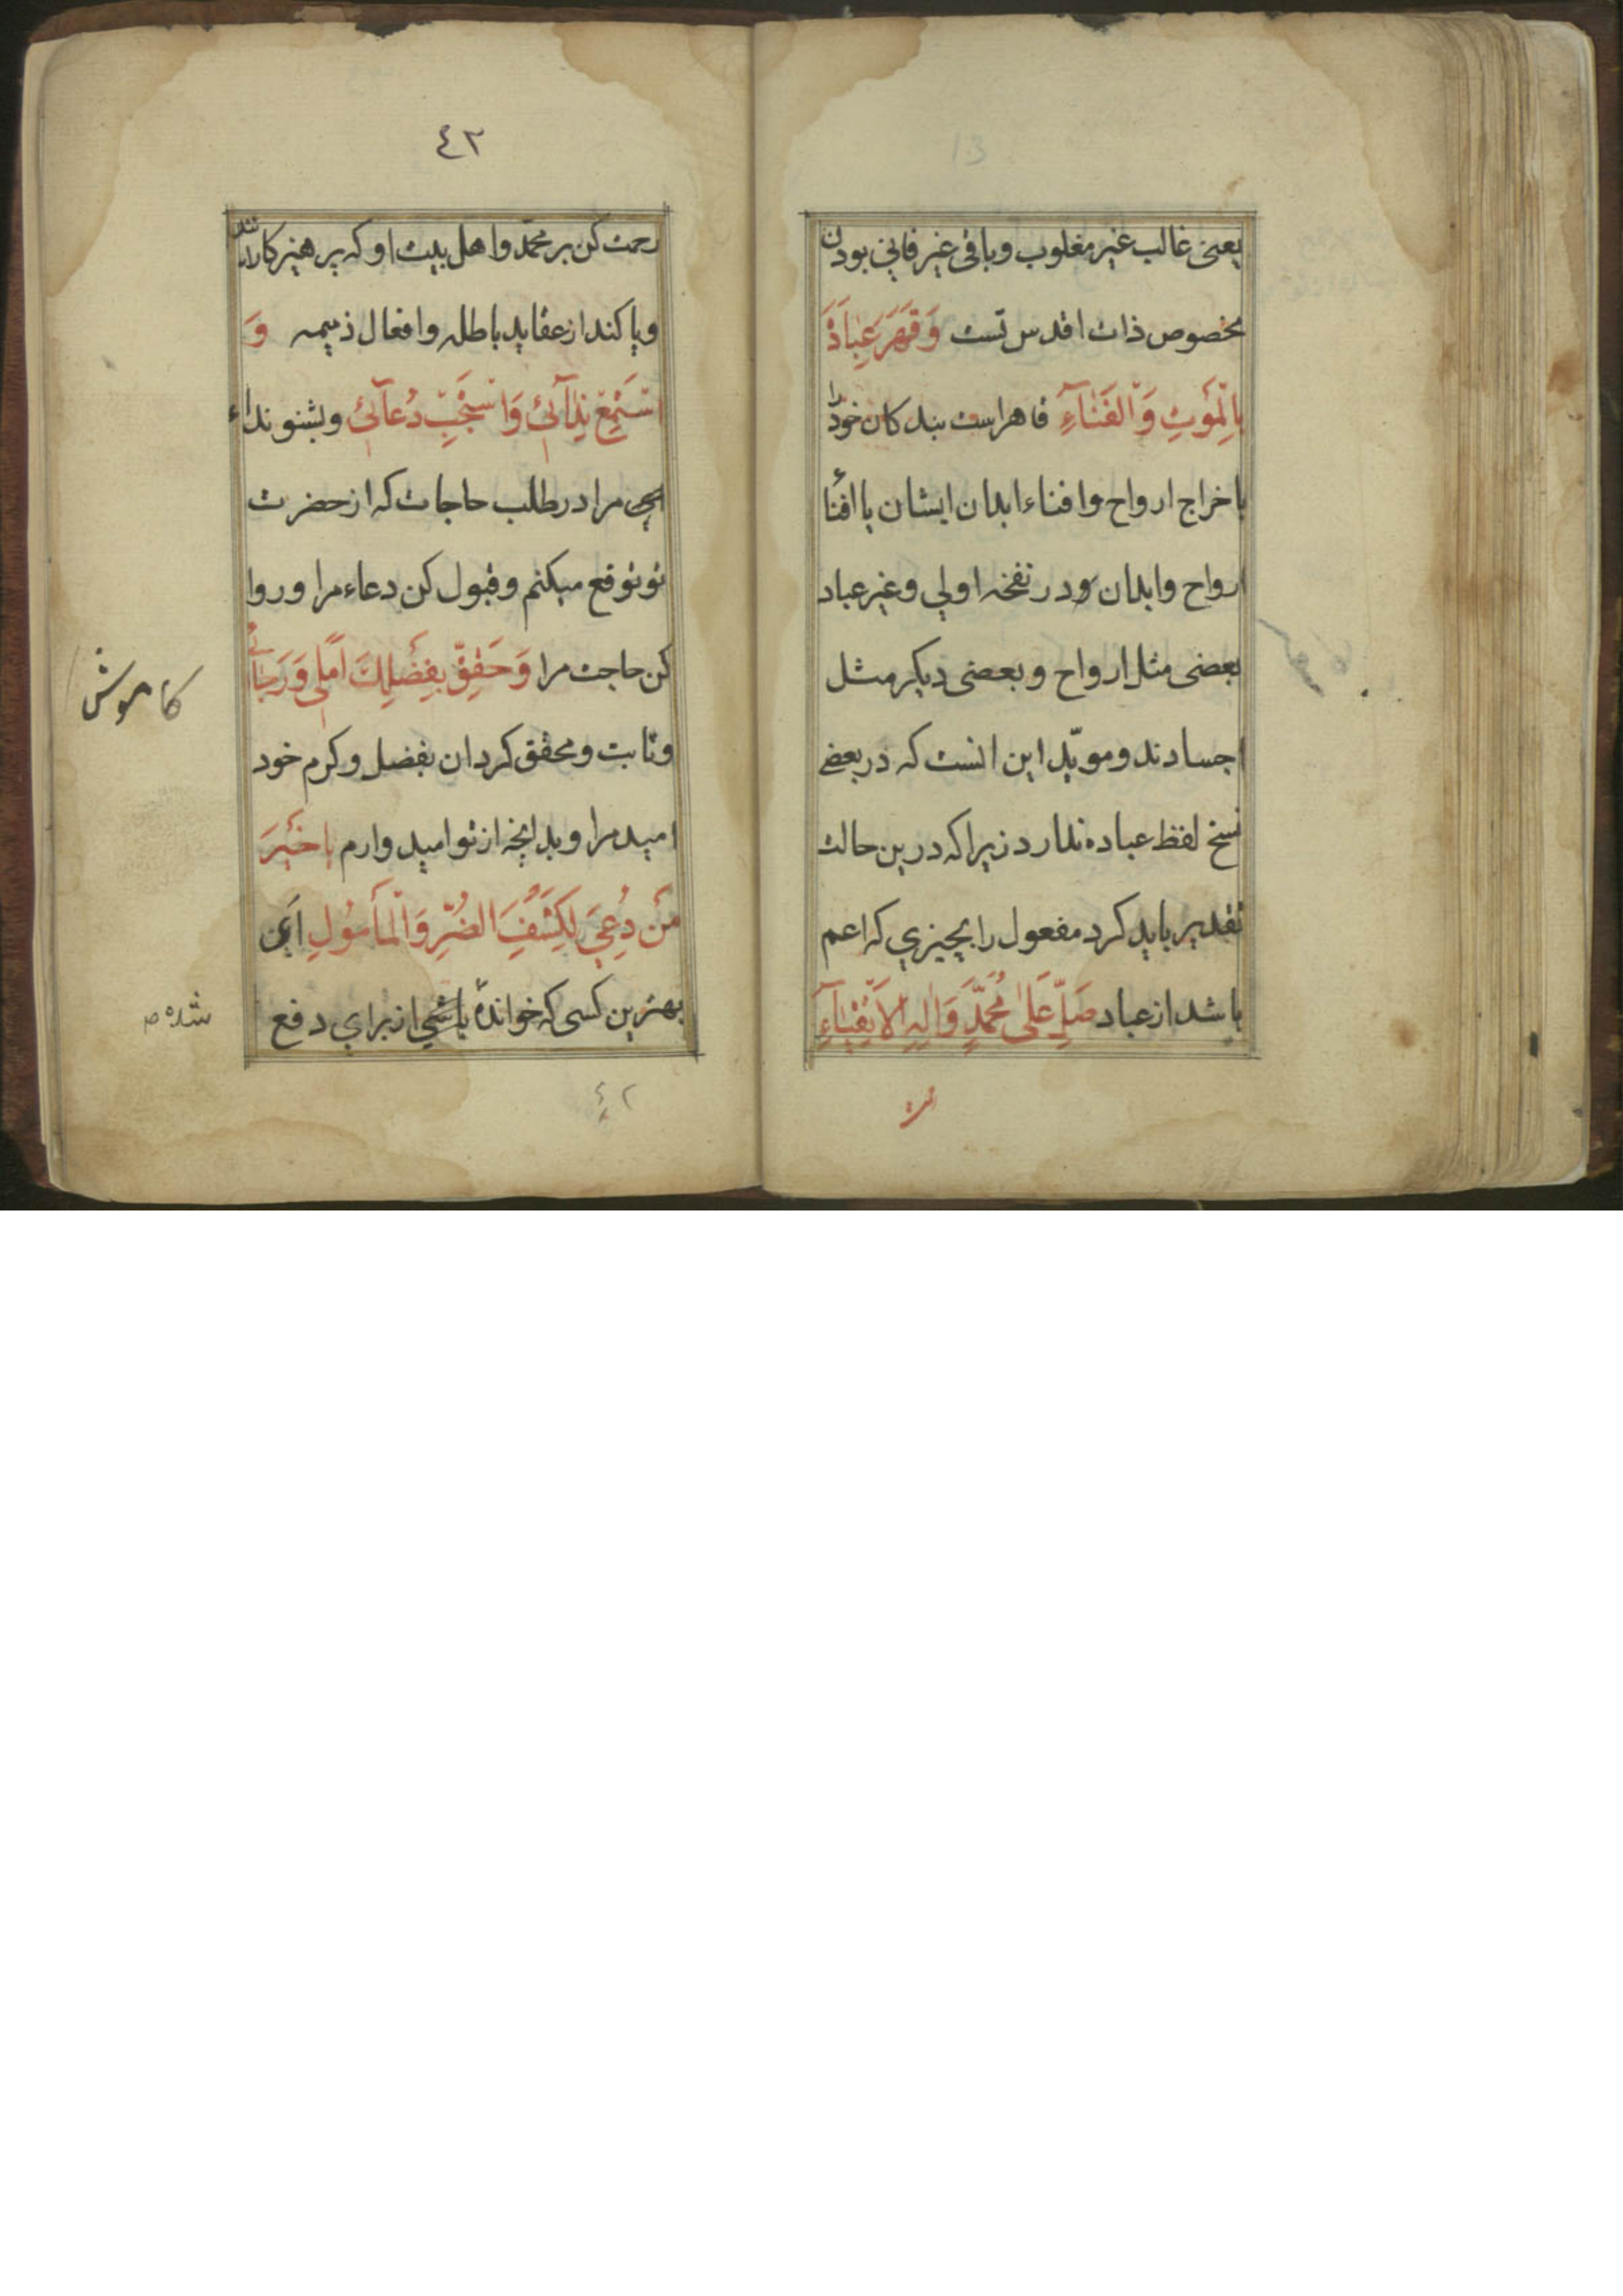 13
یعنی غالب غیر مغلوب و باقی غیر فانی بودن
مخصوص ذات اقدس تست وَقَهَرَ عِبَادَهُ
بِالْمَوْتِ وَالْفَنَآءِ قاهراست بندکان خود را
باخراج ارواح وافناء ابدان ایشان یا افنا
ارواح وابدان ودر نفخه اولی وغیر عباد
بعضی مثل ارواح وبعضی دیکر مثل
اجسادند ومویّد این انست که در بعضی
نسخ لفظ عباده ندارد زیرا که درین حالت
تقدیر باید کرد مفعول را بچیزی که اعم
باشد از عباد صَلِّ عَلٰی مُحَمَّدٍ وَاٰلِهِ الْاَتْقِیَآءِ
٤٢
رحمت کن بر محمّد واهل بیت او که پرهیزکارانند
وپاکند از عقاید باطله وافعال ذمیمه وَ
اسْتَمِعْ نِدَآئِیْ وَاسْتَجِبْ دُعَآئِیْ وبشنو نداء
مرا در طلب حاجات که از حضرت
تو توقع میکنم وقبول کن دعاء مرا و روا
کن حاجت مرا وَحَقِّقْ بِفَضْلِكَ اَمَلِی وَرَجَآئِی
وثابت ومحقق کردان بفضل وکرم خود
امید مرا وبدانچه از تو امید وارم یا خَیْرَ
مَنْ دُعِیَ لِکَشْفِ الضُّرِّ وَالْمَأْمُولِ ای
بهترین کسی که خواندهٔ باشی از برای دفع
شده م
٤٢